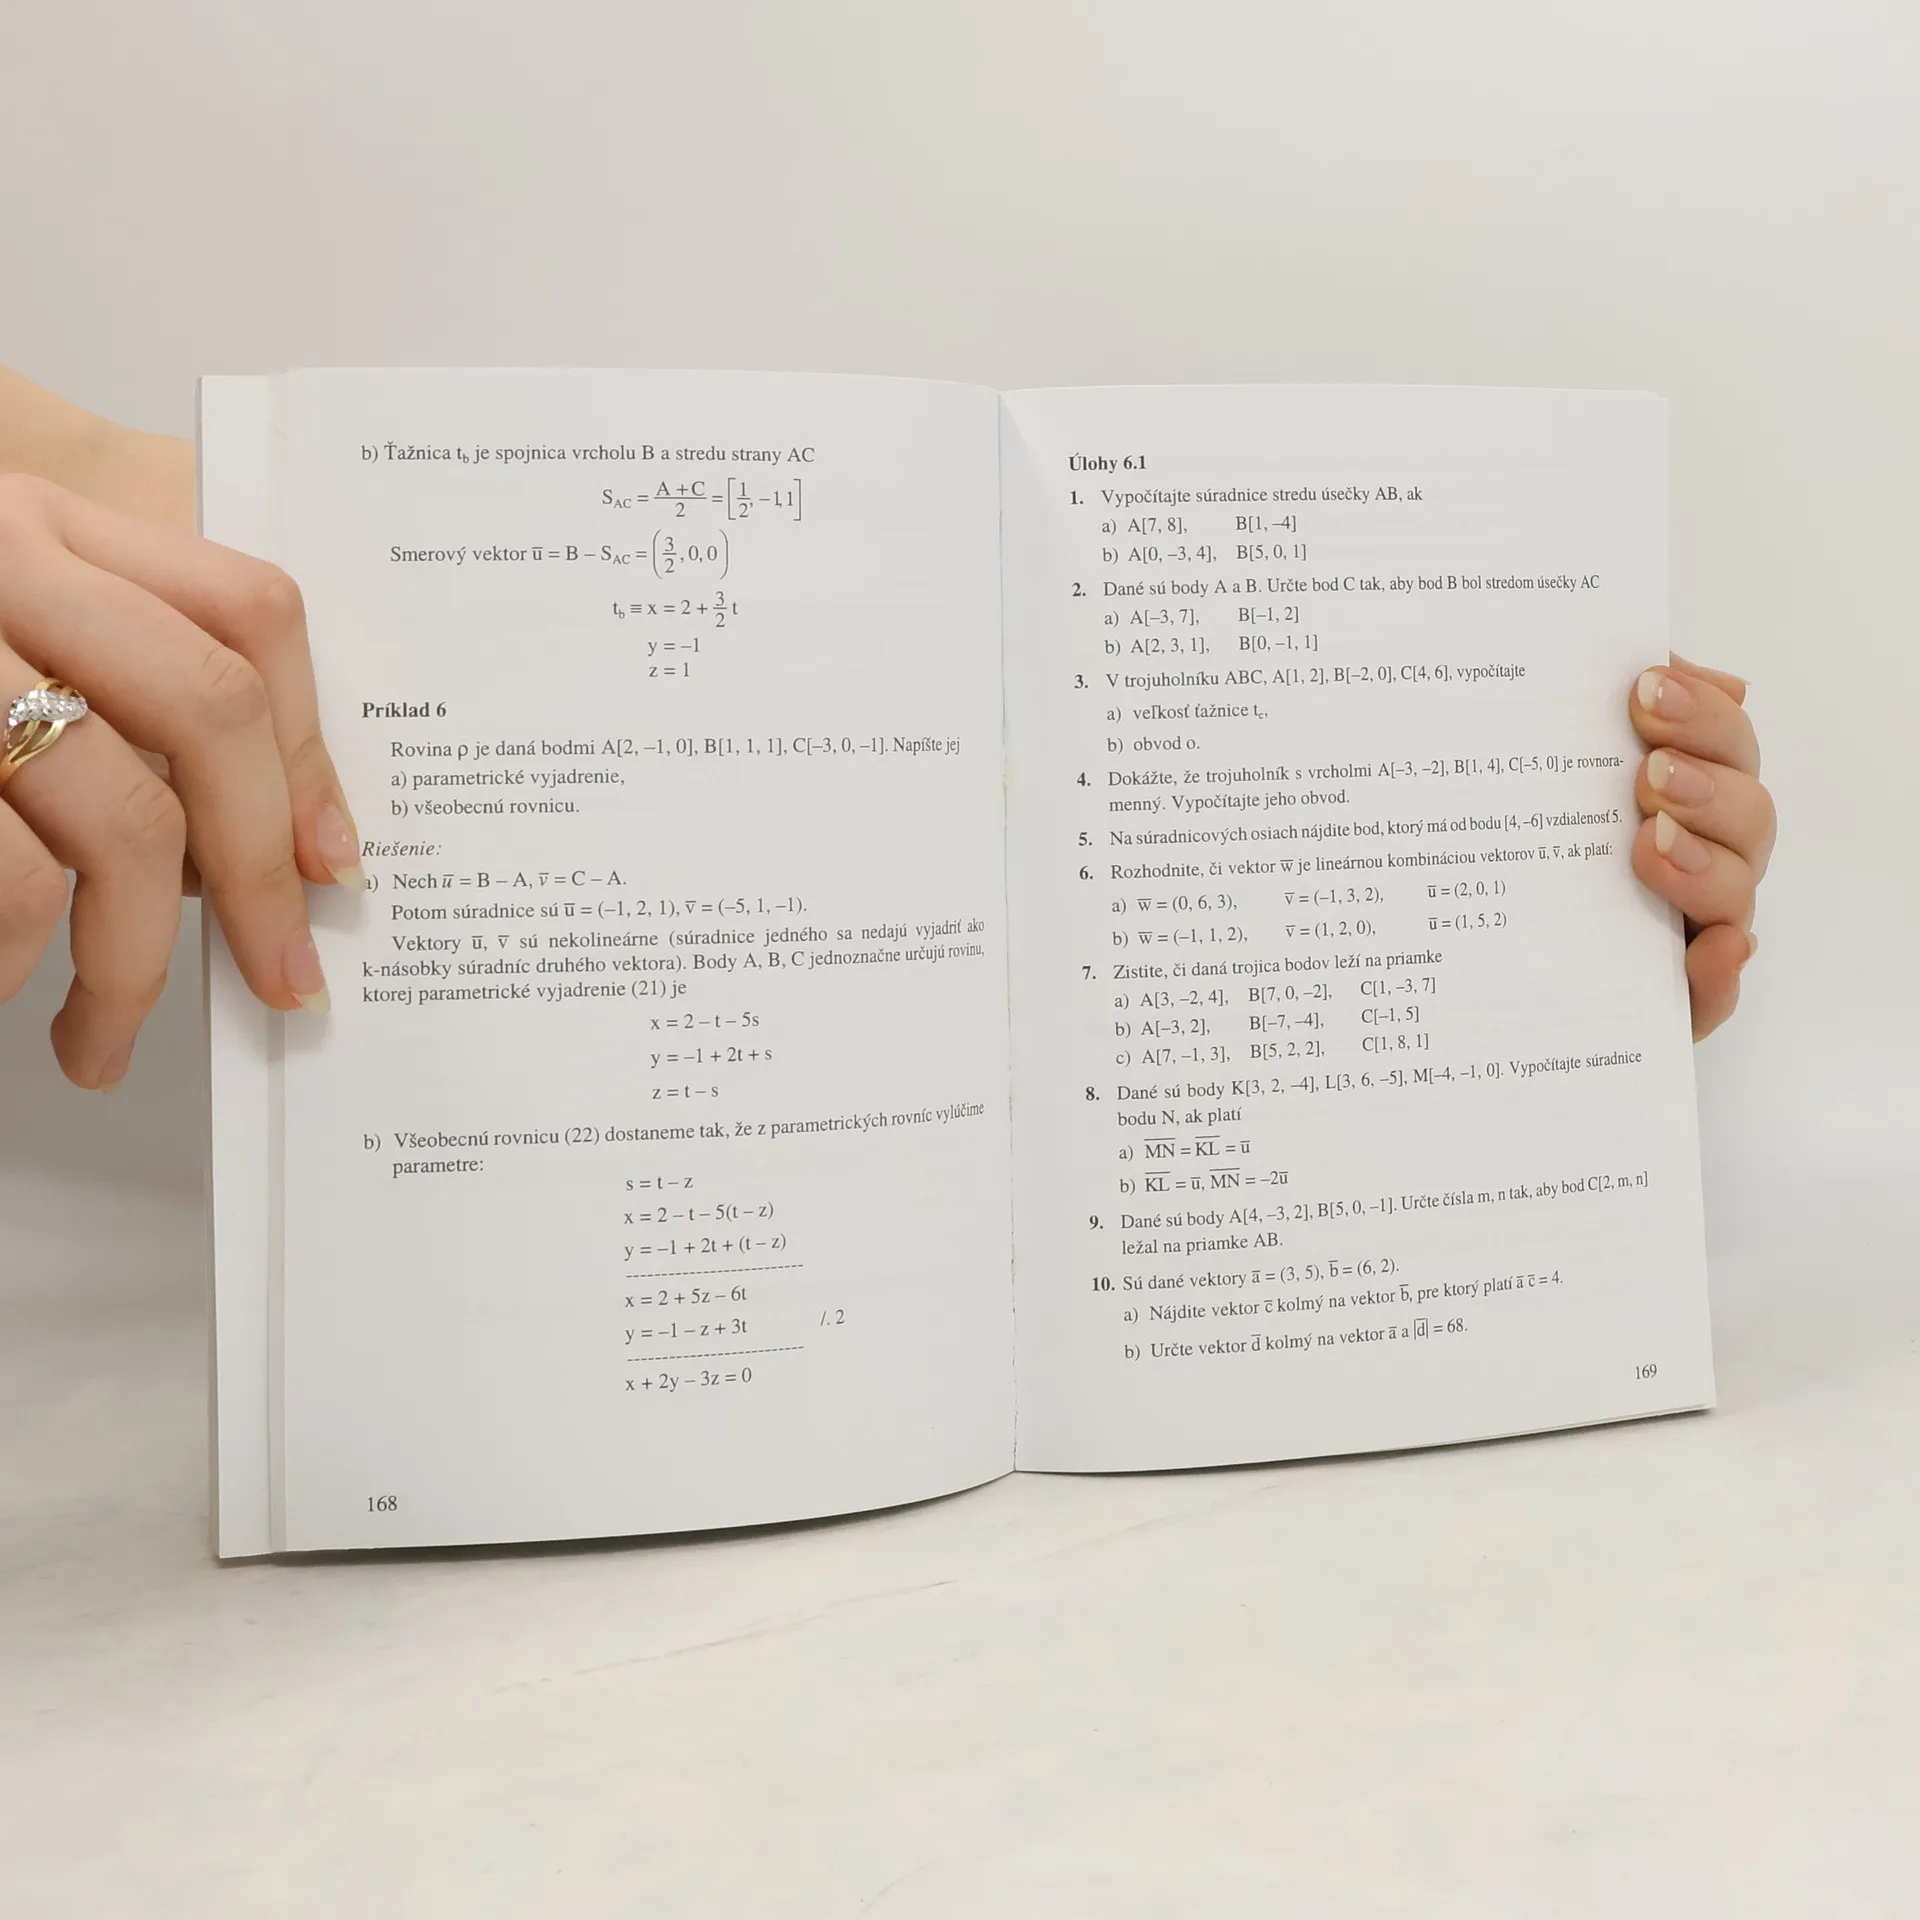 b) Ťažnica t_b je spojnica vrcholu B a stredu strany AC
S_AC = (A + C)/2 = [1/2, –1, 1]
Smerový vektor u̅ = B – S_AC = (3/2, 0, 0)
t_b ≡ x = 2 + 3/2 t
y = –1
z = 1
Príklad 6
Rovina ρ je daná bodmi A[2, –1, 0], B[1, 1, 1], C[–3, 0, –1]. Napíšte jej
a) parametrické vyjadrenie,
b) všeobecnú rovnicu.
Riešenie:
a) Nech u̅ = B – A, v̅ = C – A.
Potom súradnice sú u̅ = (–1, 2, 1), v̅ = (–5, 1, –1).
Vektory u̅, v̅ sú nekolineárne (súradnice jedného sa nedajú vyjadriť ako
k-násobky súradníc druhého vektora). Body A, B, C jednoznačne určujú rovinu,
ktorej parametrické vyjadrenie (21) je
x = 2 – t – 5s
y = –1 + 2t + s
z = t – s
b) Všeobecnú rovnicu (22) dostaneme tak, že z parametrických rovníc vylúčime
parametre:
s = t – z
x = 2 – t – 5(t – z)
y = –1 + 2t + (t – z)
x = 2 + 5z – 6t
y = –1 – z + 3t /. 2
x + 2y – 3z = 0
168
Úlohy 6.1
1. Vypočítajte súradnice stredu úsečky AB, ak
a) A[7, 8], B[1, –4]
b) A[0, –3, 4], B[5, 0, 1]
2. Dané sú body A a B. Určte bod C tak, aby bod B bol stredom úsečky AC
a) A[–3, 7], B[–1, 2]
b) A[2, 3, 1], B[0, –1, 1]
3. V trojuholníku ABC, A[1, 2], B[–2, 0], C[4, 6], vypočítajte
a) veľkosť ťažnice t_c,
b) obvod o.
4. Dokážte, že trojuholník s vrcholmi A[–3, –2], B[1, 4], C[–5, 0] je rovnora-
menný. Vypočítajte jeho obvod.
5. Na súradnicových osiach nájdite bod, ktorý má od bodu [4, –6] vzdialenosť 5.
6. Rozhodnite, či vektor w̅ je lineárnou kombináciou vektorov u̅, v̅, ak platí:
a) w̅ = (0, 6, 3), v̅ = (–1, 3, 2), u̅ = (2, 0, 1)
b) w̅ = (–1, 1, 2), v̅ = (1, 2, 0), u̅ = (1, 5, 2)
7. Zistite, či daná trojica bodov leží na priamke
a) A[3, –2, 4], B[7, 0, –2], C[1, –3, 7]
b) A[–3, 2], B[–7, –4], C[–1, 5]
c) A[7, –1, 3], B[5, 2, 2], C[1, 8, 1]
8. Dané sú body K[3, 2, –4], L[3, 6, –5], M[–4, –1, 0]. Vypočítajte súradnice
bodu N, ak platí
a) M̅N̅ = K̅L̅ = u̅
b) K̅L̅ = u̅, M̅N̅ = –2u̅
9. Dané sú body A[4, –3, 2], B[5, 0, –1]. Určte čísla m, n tak, aby bod C[2, m, n]
ležal na priamke AB.
10. Sú dané vektory a̅ = (3, 5), b̅ = (6, 2).
a) Nájdite vektor c̅ kolmý na vektor b̅, pre ktorý platí a̅ c̅ = 4.
b) Určte vektor d̅ kolmý na vektor a̅ a |d̅| = 68.
169